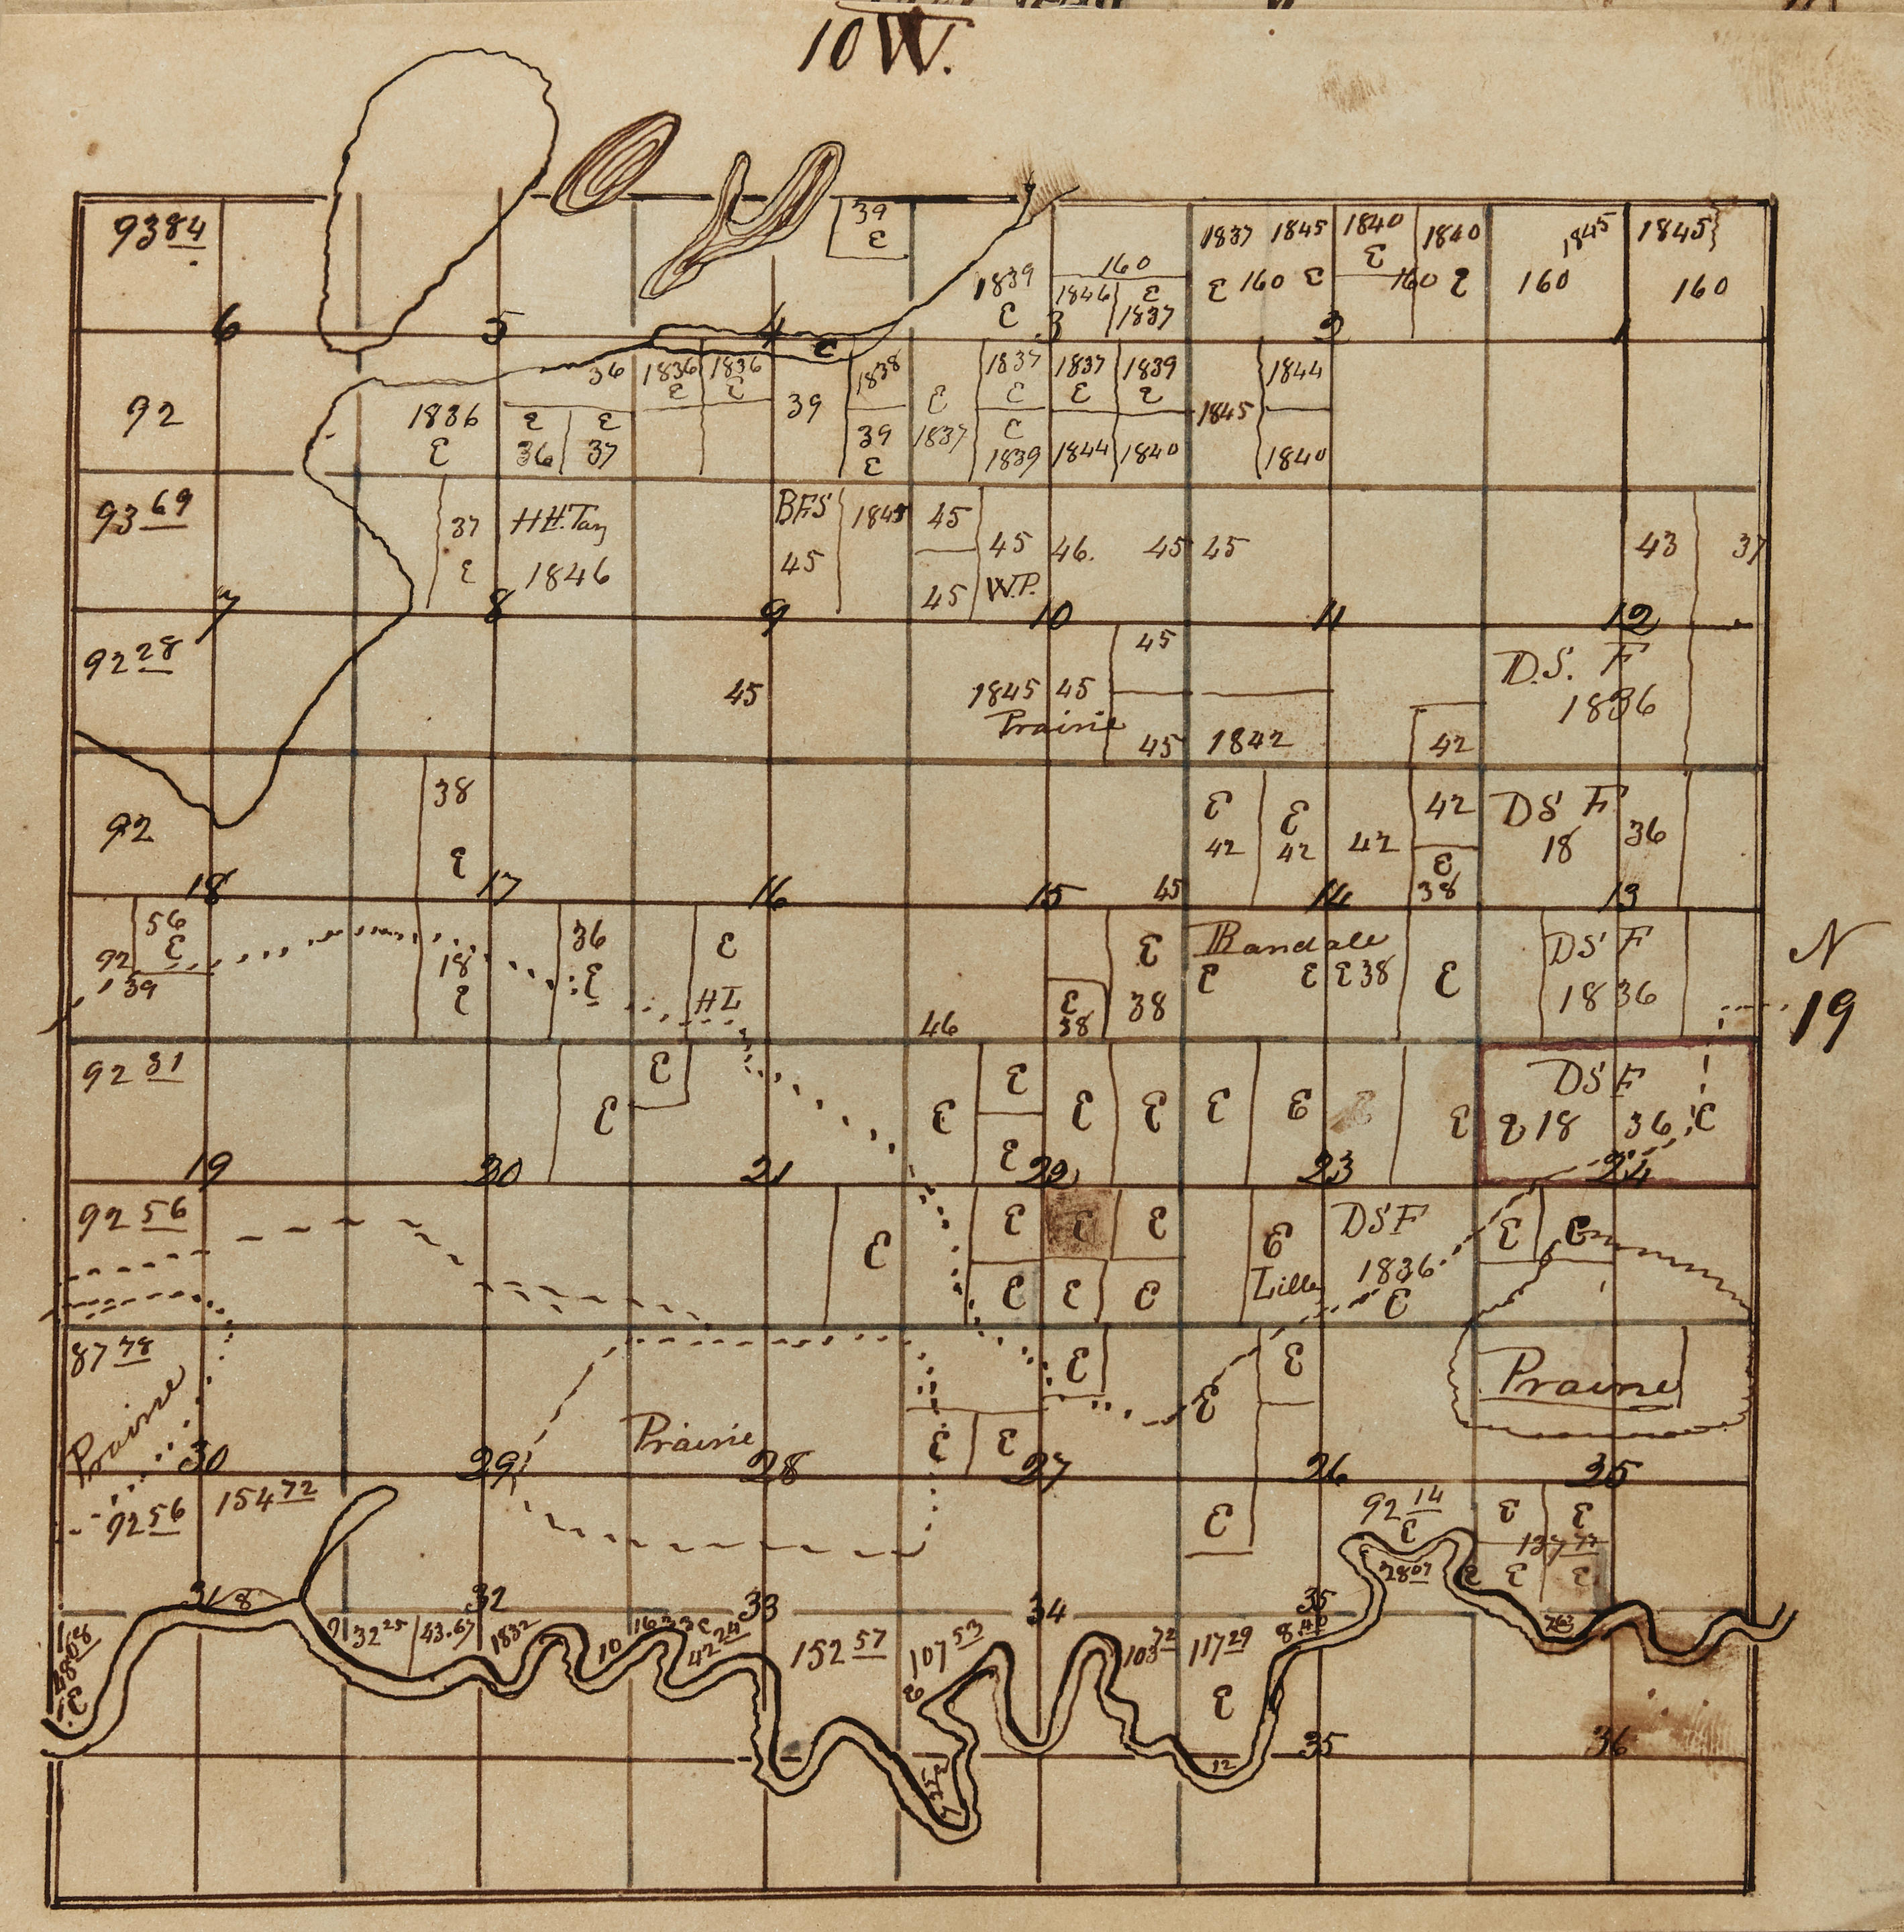 10 W.
93 84
39
ε
1839
ε
160
1846 ε
1837
1837 1845 1840 1840
ε 160 ε ε 160 ε
1845 1845
160 160
6 5 4 3 2 1
92
1836
ε
36
ε ε
36 37
1836 1836
ε ε
39
1838
39
ε
ε
1837
1837
ε
ε
1839
1837 1839
ε ε
1844 1840
1845
1844
1840
93 69
37
ε
H H. Tay
1846
BFS
45
1845
45
45
45
W.P.
46. 45 45
43 37
7 8 9 10 11 12
92 28
45
1845 45
Prairie
45
45
1842
42
D.S. F
1836
92
38
ε
45
ε ε
42 42 42
42
ε
38
DS F
18 36
18 17 16 15 14 13
56
ε
92
39
18
ε
36
ε
ε
HL
46
ε
38
ε
38
Bandale
ε ε ε 38 ε
DS F
1836
N
19
92 31
ε
ε
ε
ε
ε
ε ε ε ε ε ε
DSF
ε 18 36 ε
19 20 21 22 23 24
92 56
ε
ε ε ε
ε ε ε
ε
Lille
DSF
1836
ε
ε
87 78
Prairie
Prairie
ε
ε ε
ε
ε
Prairie
30 29 28 27 26 25
92 56
154 72
ε
92 14
ε
28 07
ε ε
137 77
ε ε ε
31 8 32 33 34 35
ε
32 25
43.67
1832
10
42 24
152 57
107 53
ε
103 72
117 29
ε
12
35 36